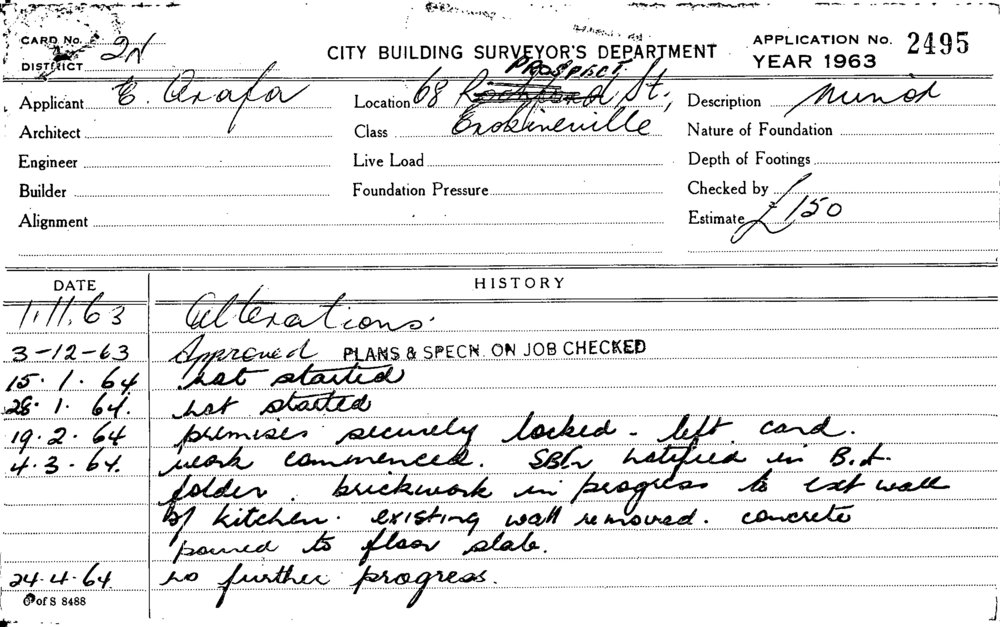 CARD No.
DISTRICT 2N
CITY BUILDING SURVEYOR'S DEPARTMENT
APPLICATION No. 2495
YEAR 1963
Applicant E. Arafa
Location 68 PROSPECT St.,
Description Minor
Architect
Class Erskineville
Nature of Foundation
Engineer
Live Load
Depth of Footings
Builder
Foundation Pressure
Checked by
Alignment
Estimate £150
DATE
HISTORY
1.11.63 Alterations.
3-12-63 Approved PLANS & SPECN. ON JOB CHECKED
15.1.64 not started
28.1.64. not started
19.2.64 premises securely locked - left card.
4.3.64. work commenced. notified in B.I.
folder. brickwork in progress to ext wall
of kitchen. existing wall removed. concrete
poured to floor slab.
24.4.64. no further progress.
of S 8488